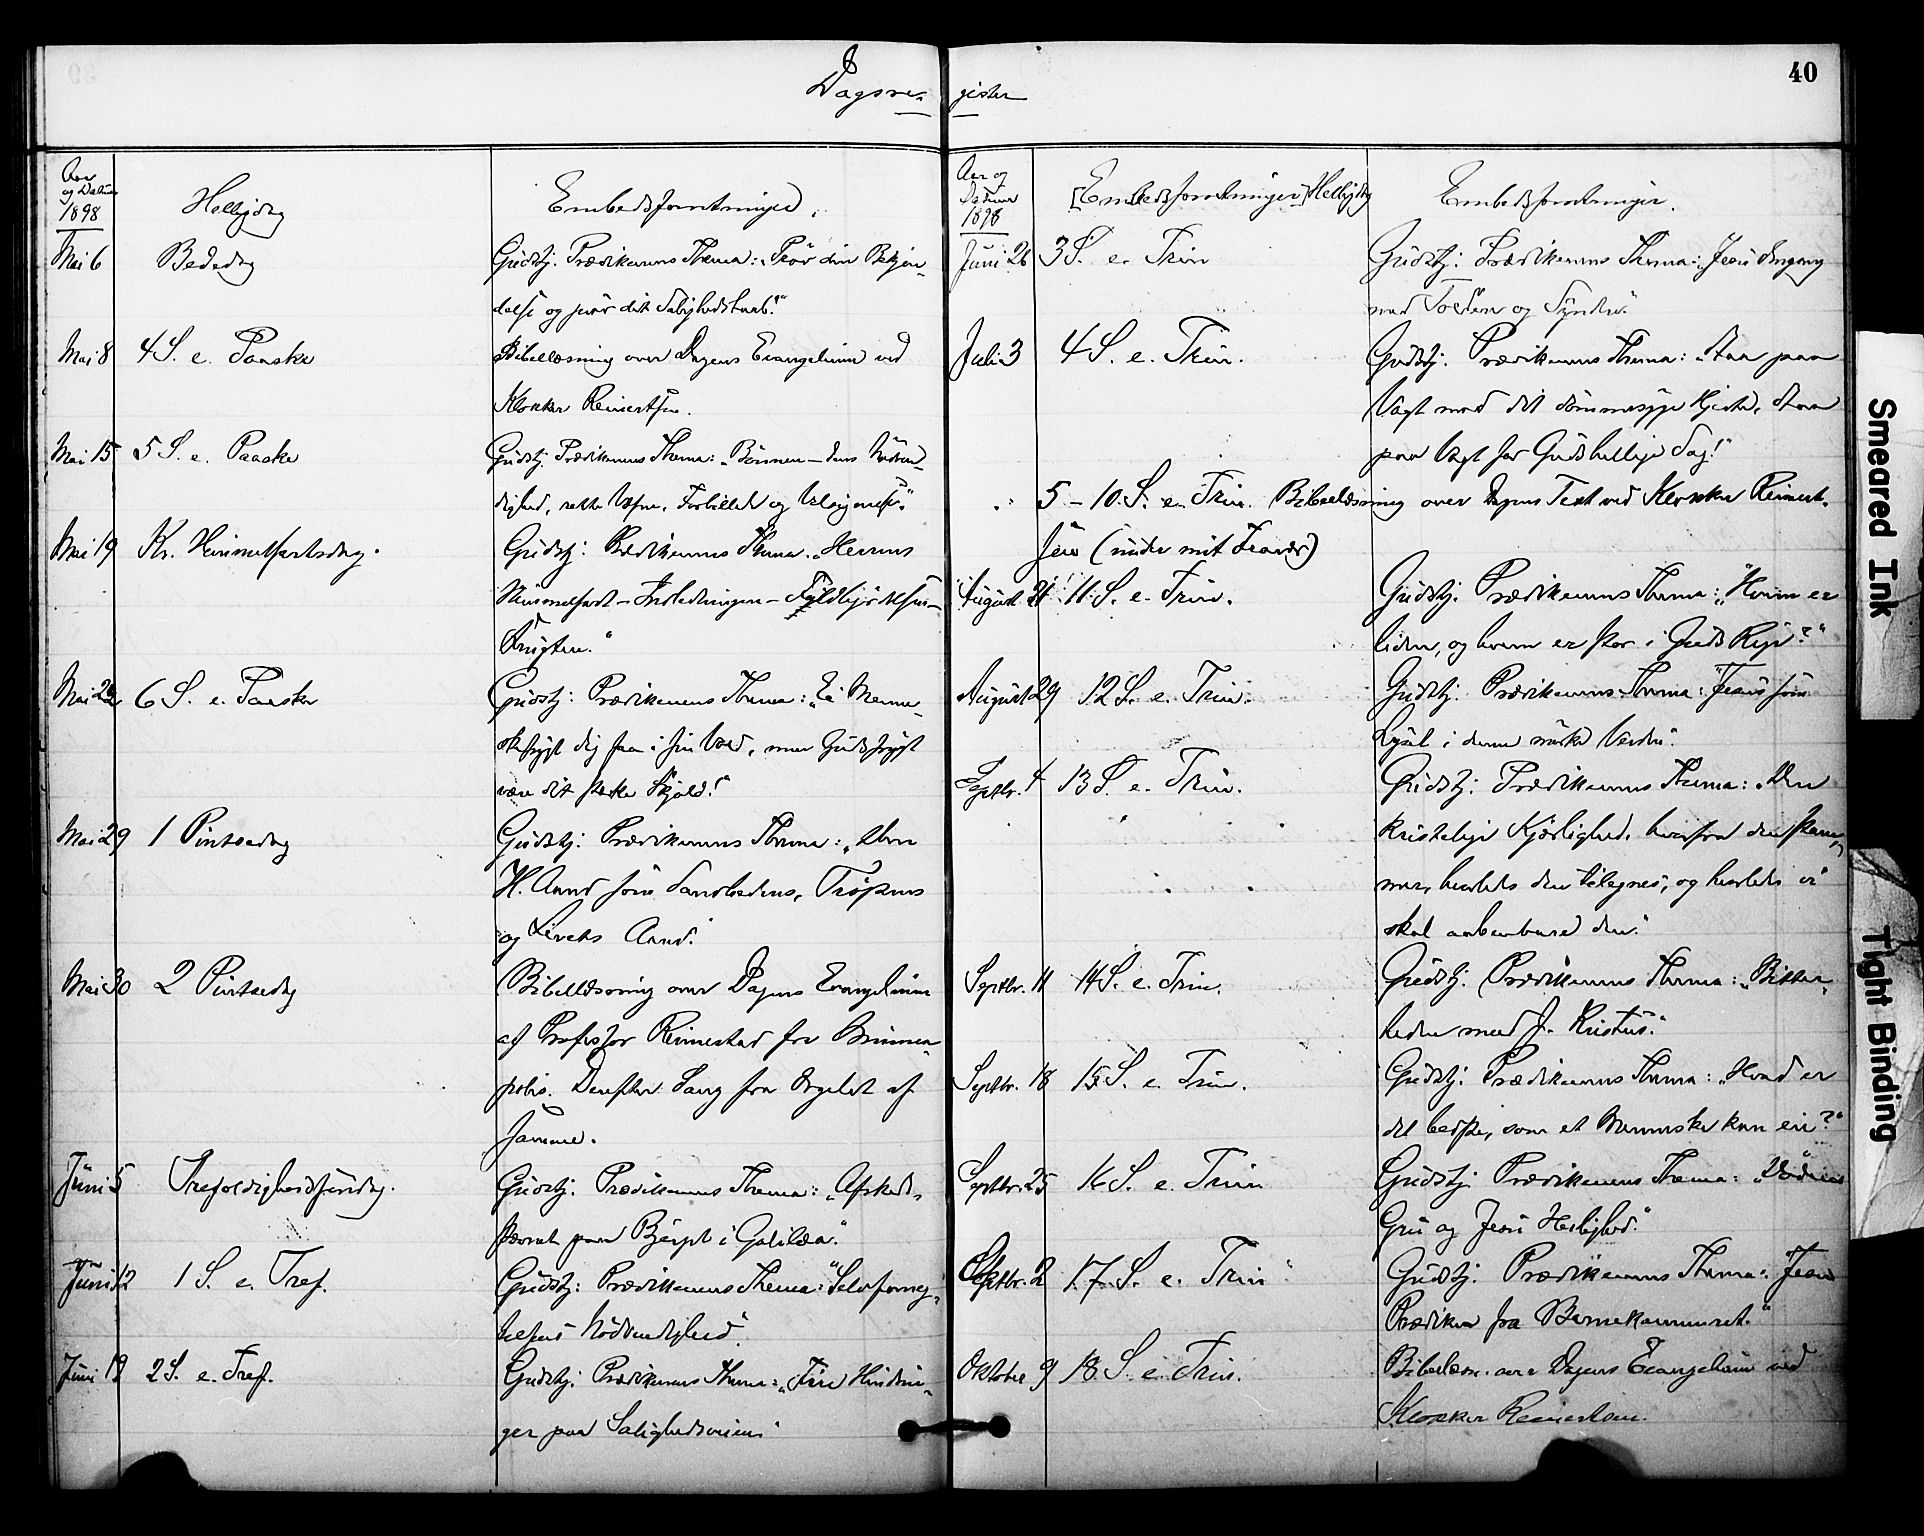 40
Dagsregister
Aar og Datum 1898
Helligdag
Embedsforretninger.
Mai 6 Bededag Gudstj. Prædikenens Thema: "Prøv din Bekjen-
delse og prøv dit Salighedshaab!"
Mai 8 4 S. e. Paaske Bibellæsning over Dagens Evangelium ved
Klokker Reinertsen.
Mai 15 5 S. e. Paaske Gudstj. Prædikenens Thema: "Bønnen – dens Nødven-
dighed, rette Væsen, Forbillede og Velsignelse."
Mai 19 Kr. Himmelfartsdag. Gudstj: Prædikenens Thema. "Herrens
Himmelfart – Indledningen – Fyldbyrdelsen –
Frugten."
Mai 22 6 S. e. Paaske Gudstj: Prædikenens Thema: "Ei Menne-
skefrygt dig faa i sin Vold, men Gudsfrygt
være dit stærke Skjold!"
Mai 29 1 Pintsedag Gudstj: Prædikenens Thema: "Den
H. Aand som Sandhedens, Trøstens
og Livets Aand."
Mai 30 2 Pintsedag Bibellæsning over Dagens Evangelium
af Professor Reimestad fra Minnea-
polis. Derefter Sang fra Orgelet af
samme.
Juni 5 Trefoldighedssøndag. Gudstj. Prædikenens Thema: "Afskeds-
stævnet paa Bjerget i Galilæa."
Juni 12 1 S. e. Tref. Gudstj: Prædikenens Thema: "Selvforneg-
telsens Nødvendighed"
Juni 19 2 S. e. Tref. Gudstj: Prædikenens Thema: "Fire Hindrin-
ger paa Salighedsveien"
Aar og Datum 1898
[Embedsforretninger] Helligdag
Embedsforretninger.
Juni 26 3 S. e. Trin Gudstj: Prædikenens Thema: "Jesu Omgang
med Toldere og Syndere."
Juli 3 4 S. e. Trin. Gudstj. Prædikenens Thema: "Staa paa
Vagt mod det dømmesyge Hjerte, staa
paa Vagt for Guds hellige Sag!"
" 5 – 10. S. e. Trin. Bibellæsning over Dagens Text ved Klokker Reinert-
sen (under mit Fravær)
August 21 11 S. e. Trin. Gudstj. Prædikenens Thema: "Hvem er
liden, og hvem er stor i Guds Rige?"
August 29 12 S. e. Trin. Gudstj. Prædikenens Thema: "Jesus som
Lyset i denne mørke Verden".
Septbr. 4 13 S. e. Trin. Gudstj: Prædikenens Thema: "Den
kristelige Kjærlighed, hvorfra den stam-
mer, hvorledes den tilegnes, og hvorledes vi
skal aabenbare den."
Septbr. 11 14 S. e. Trin. Gudstj. Prædikenens Thema:
med J. Kristus."
Septbr. 18 15 S. e. Trin. Gudstj. Prædikenens Thema: "Hvad er
det bedste, som et Menneske kan eie?"
Septbr. 25 16 S. e. Trin Gudstj. Prædikenens Thema: "Dødens
Gru og Jesu Herlighed."
2 17. S. e. Trin Gudstj. Prædikenens Thema: "Jesu
Prædiken fra Barnekammeret."
Oktober 9 18. S. e. Trin. Bibellæsn. over Dagens Evangelium ved
Klokker Reinertsen.
Smeared Ink
Tight Binding